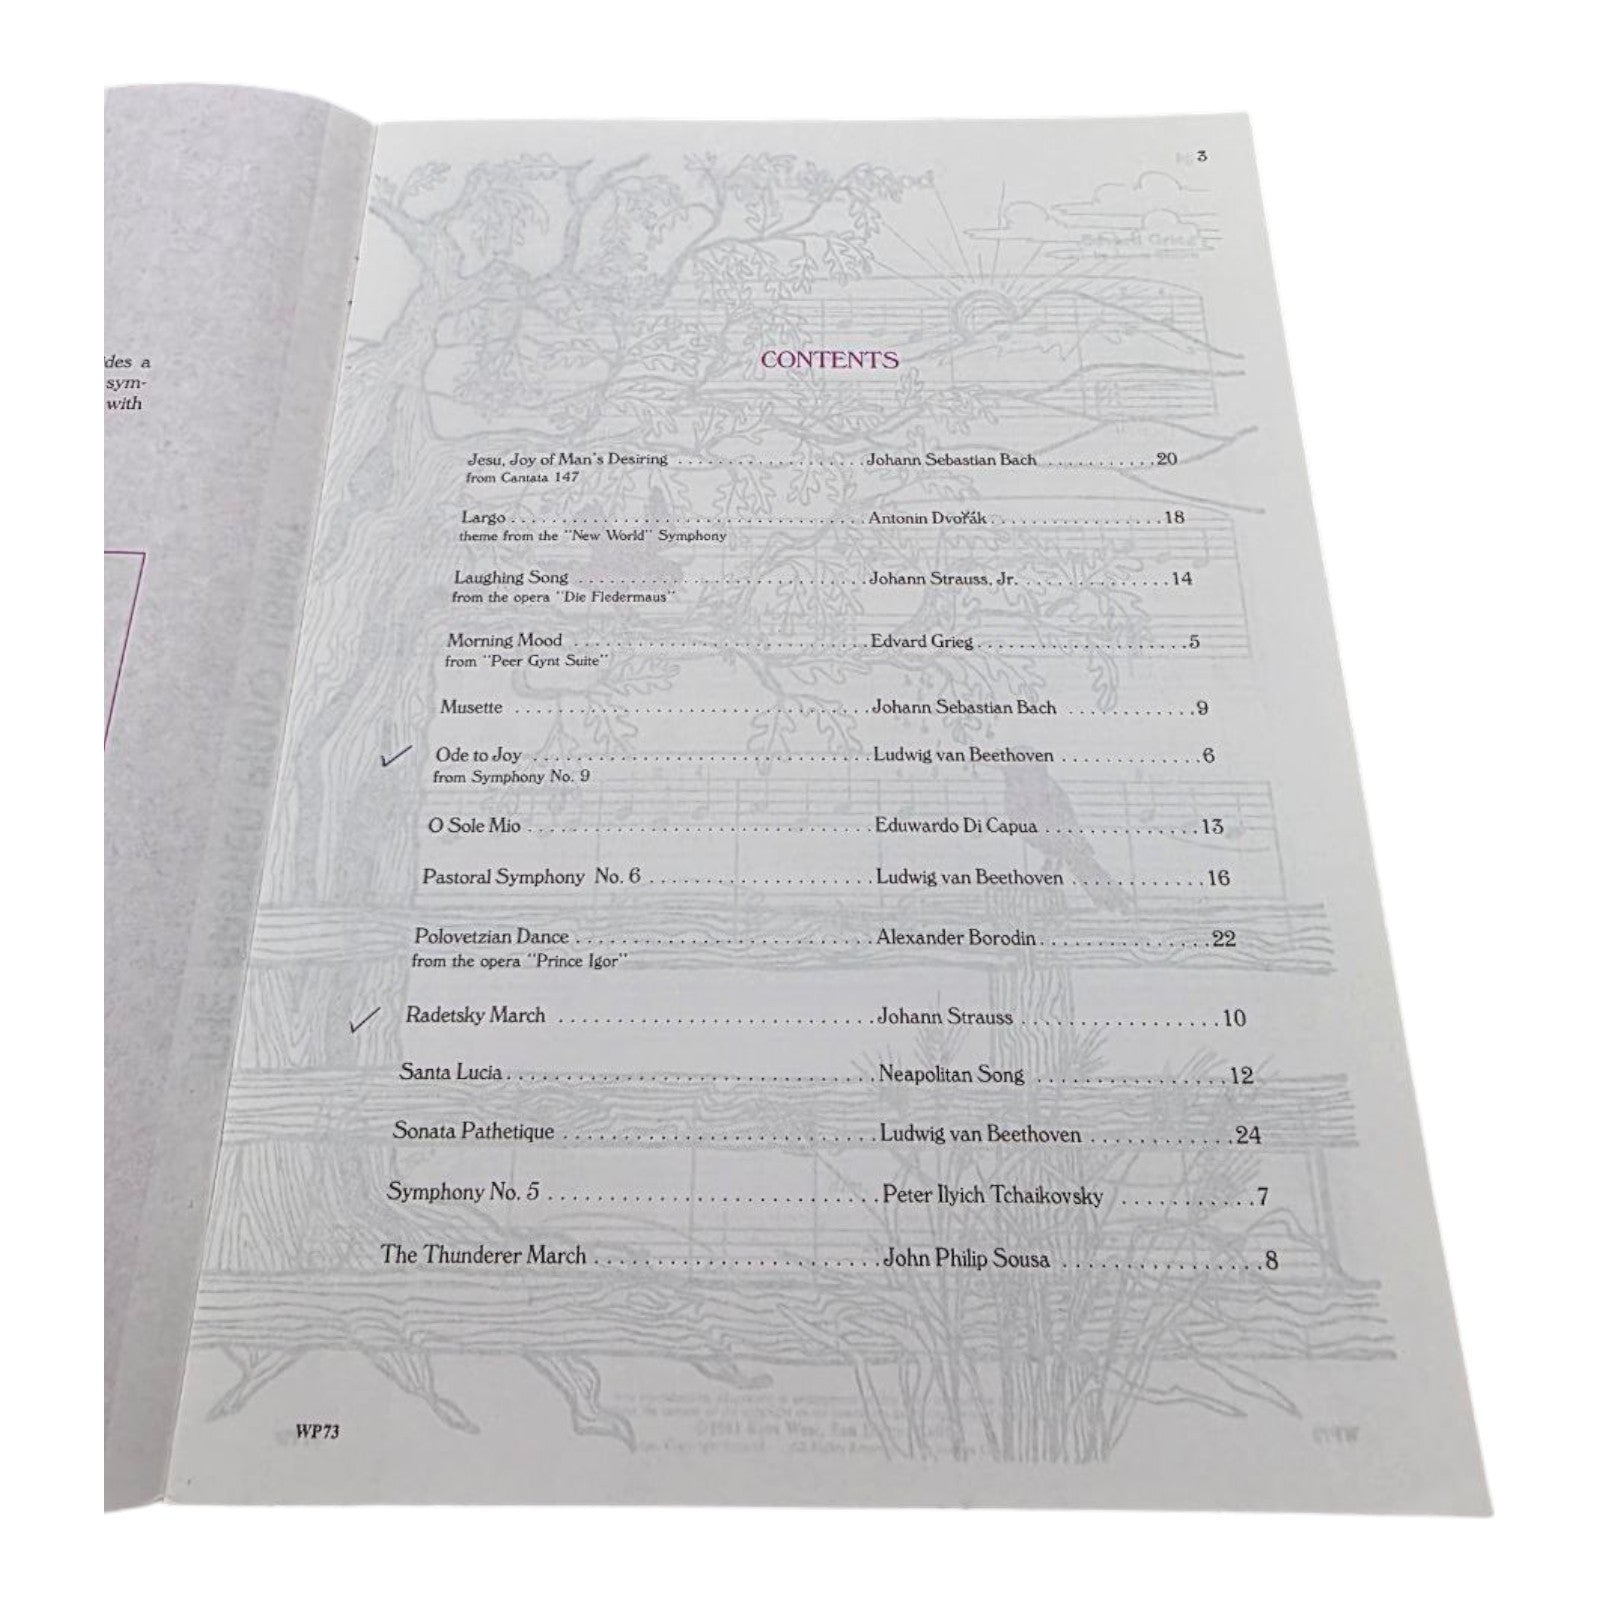 des a
sym-
with
3
CONTENTS
Jesu, Joy of Man's Desiring . . . . . . . . . . . . . . . . . . . Johann Sebastian Bach . . . . . . . . . . . 20
from Cantata 147
Largo . . . . . . . . . . . . . . . . . . . . . . . . . . . . . . . . . . . Antonin Dvořák . . . . . . . . . . . . . . . . 18
theme from the "New World" Symphony
Laughing Song . . . . . . . . . . . . . . . . . . . . . . . . . . . . Johann Strauss, Jr. . . . . . . . . . . . . . . 14
from the opera "Die Fledermaus"
Morning Mood . . . . . . . . . . . . . . . . . . . . . . . . . . . . Edvard Grieg . . . . . . . . . . . . . . . . . . . . 5
from "Peer Gynt Suite"
Musette . . . . . . . . . . . . . . . . . . . . . . . . . . . . . . . . . Johann Sebastian Bach . . . . . . . . . . . . 9
Ode to Joy . . . . . . . . . . . . . . . . . . . . . . . . . . . . . . . Ludwig van Beethoven . . . . . . . . . . . . . 6
from Symphony No. 9
O Sole Mio . . . . . . . . . . . . . . . . . . . . . . . . . . . . . . Eduwardo Di Capua . . . . . . . . . . . . . . 13
Pastoral Symphony No. 6 . . . . . . . . . . . . . . . . . . . . Ludwig van Beethoven . . . . . . . . . . . . 16
Polovetzian Dance . . . . . . . . . . . . . . . . . . . . . . . . . Alexander Borodin . . . . . . . . . . . . . . . 22
from the opera "Prince Igor"
Radetsky March . . . . . . . . . . . . . . . . . . . . . . . . . . Johann Strauss . . . . . . . . . . . . . . . . . 10
Santa Lucia . . . . . . . . . . . . . . . . . . . . . . . . . . . . . . Neapolitan Song . . . . . . . . . . . . . . . . 12
Sonata Pathetique . . . . . . . . . . . . . . . . . . . . . . . . . Ludwig van Beethoven . . . . . . . . . . . . 24
Symphony No. 5 . . . . . . . . . . . . . . . . . . . . . . . . . . Peter Ilyich Tchaikovsky . . . . . . . . . . . 7
The Thunderer March . . . . . . . . . . . . . . . . . . . . . . John Philip Sousa . . . . . . . . . . . . . . . . 8
WP73